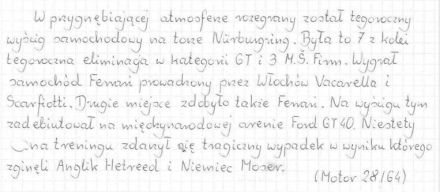 W przygnębiającej atmosferze rozegrany został tegoroczny
wyścig samochodowy na torze Nürburgring. Była to 7 z kolei
tegoroczna eliminacja w kategorii GT i 3 M.Ś. Firm. Wygrał
samochód Ferrari prowadzony przez Włochów Vacarella i
Scarfiotti. Drugie miejsce zdobyło także Ferrari. Na wyścigu tym
zadebiutował na międzynarodowej arenie Ford GT40. Niestety
na treningu zdarzył się tragiczny wypadek w wyniku którego
zginęli Anglik Hetreed i Niemiec Moser.
(Motor 28/64)